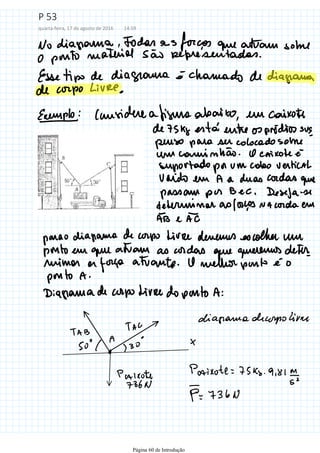 P 53
quarta-feira, 17 de agosto de 2016 14:09
No diagrama, todas as forças que atuam sobre
o ponto material são representadas.
Esse tipo de diagrama é chamado de diagrama
de corpo livre.
Exemplo: Considere a figura abaixo, um caixote
de 75 Kg está entre os prédios sus
penso para ser colocado sobre
um caminhão. O caixote é
suportado por um cabo vertical
unido em A a duas cordas que
passam por B e C. Deseja-se
determinar as forças na corda em
AB e AC
para o diagrama de corpo livre devemos escolher um
ponto em que atuam as cordas que queremos deter
minar a força atuante. O melhor ponto é o
ponto A.
Diagrama de corpo livre do ponto A:
diagrama de corpo livre
TAB
TAC
50°
A
30°
x
Pcaixote
736 N
Pcaixote = 75 Kg. 9,81 m/s²
P = 736 N
Página 60 de Introdução